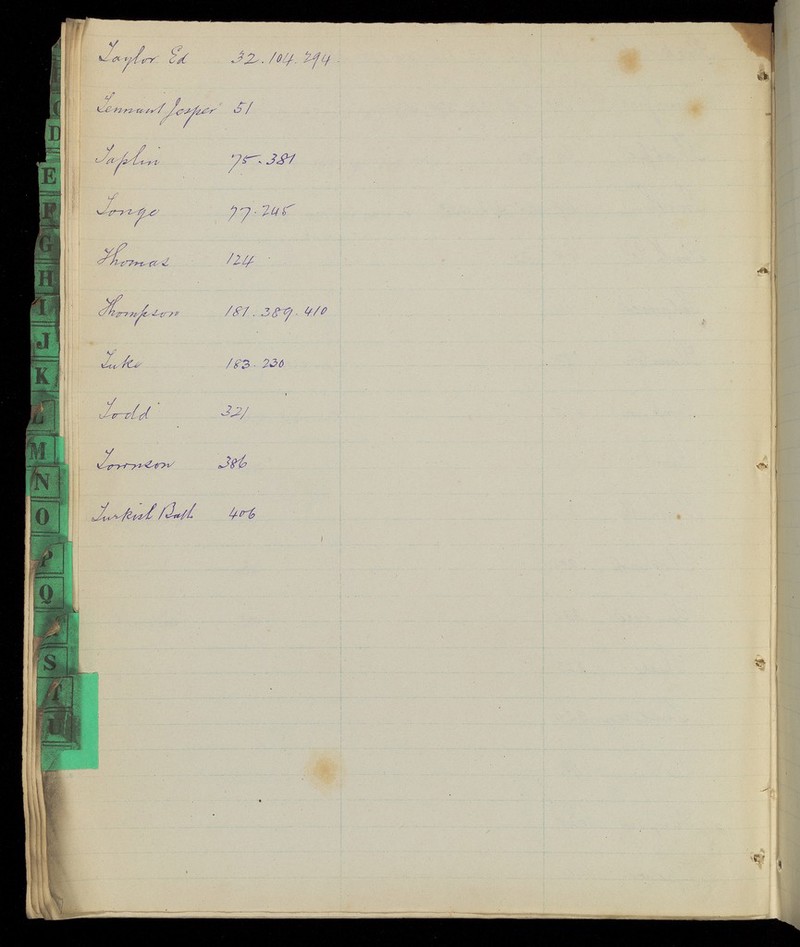 Taylor Ed 32.104.294
Tennant Josper 51
Taplin 75.381
Tonge 77.245
Thomas 124
Thompson 181.389.410
Tuke 183.230
Todd 321
Townson 386
Turkish Bath 406
D
E
F
G
H
I
J
K
L
M
N
O
P
Q
S
T
U